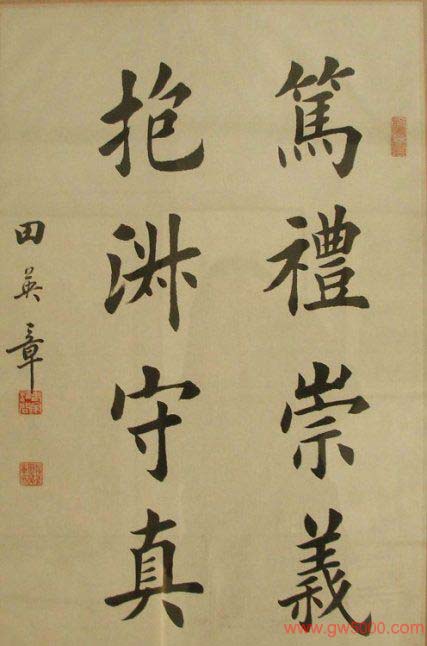 篤禮崇義
抱渊守真
田英章
www.gw5000.com